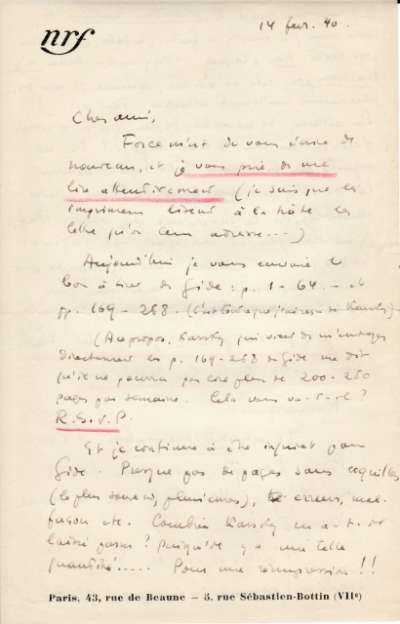 nrf
14 fevr. 40.
Cher ami,
Force m'est de vous écrire de
nouveau, et je vous prie de me
lire attentivement (je sais que les
imprimeurs lisent à la hâte les
lettres qu'on leur adresse...)
Aujourd'hui je vous envoie le
bon à tirer de Gide : p. 1-64. - et
pp. 169-258.
(A ce propos, qui vient de m'envoyer
directement les p. 169-258 de Gide me dit
qu'il ne pourra pas lire plus de 200-250
pages par semaine. Cela vous va-t-il ?
R.S.V.P.
Et je continue à être inquiet pour
Gide. Presque pas de pages sans coquilles
(le plus souvent, plusieurs), erreurs, mal-
façon etc. Combien en a-t-il
laissé passer ? Puisqu'il y a une telle
quantité..... Pour une réimpression !!
Paris, 43, rue de Beaune — 5, rue Sébastien-Bottin (VIIe)